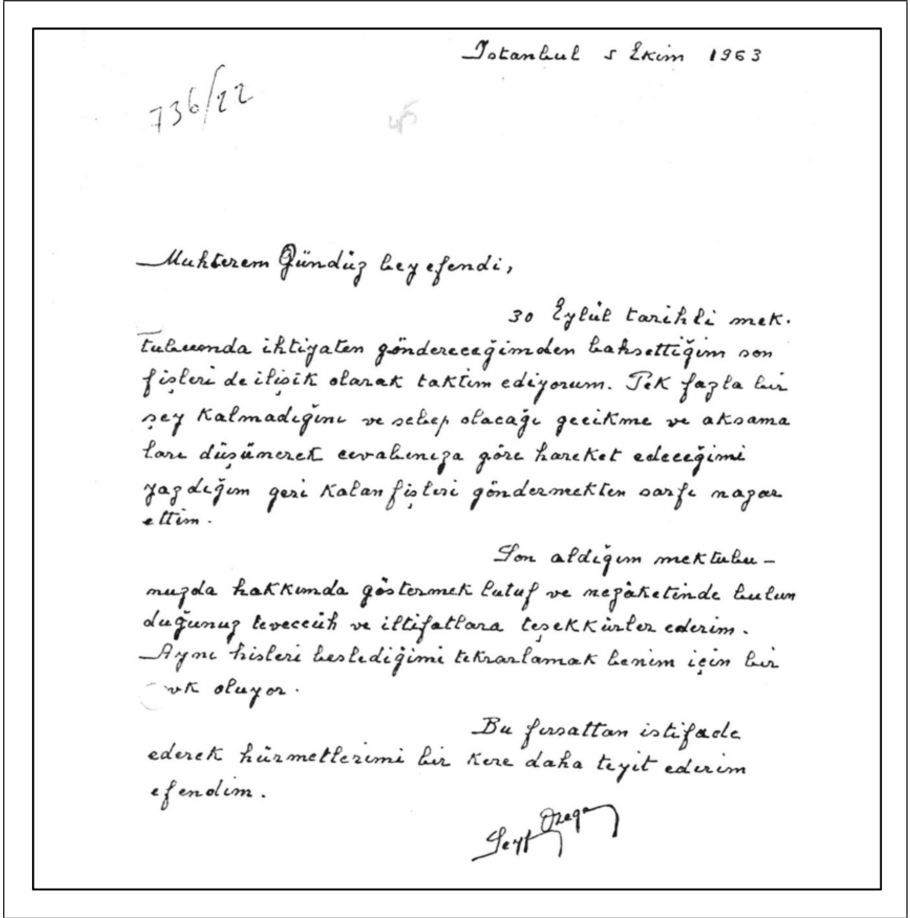 Istanbul 5 Ekim 1963
736/22
45
Muhterem Gündüz beyefendi,
30 Eylül tarihli mek-
tubumda ihtiyaten göndereceğimden bahsettiğim son
fişleri de ilişik olarak taktim ediyorum. Pek fazla bir
şey kalmadığını ve sebep olacağı gecikme ve aksama
ları düşünerek cevabınıza göre hareket edeceğimi
yazdığım geri kalan fişleri göndermekten sarfı nazar
ettim.
Son aldığım mektubu-
nuzda hakkımda göstermek lutuf ve nezâketinde bulun
duğunuz teveccüh ve iltifatlara teşekkürler ederim.
Aynı hisleri beslediğimi tekrarlamak benim için bir
zevk oluyor.
Bu fırsattan istifade
ederek hürmetlerimi bir kere daha teyit ederim
efendim.